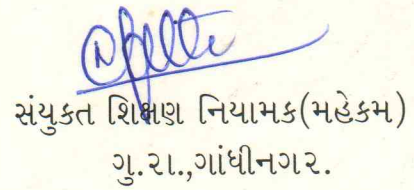 સંયુકત શિક્ષણ નિયામક(મહેકમ)
ગુ.રા.,ગાંધીનગર.